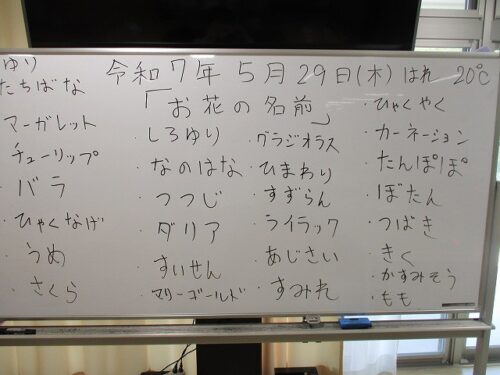 令和7年 5月 29日(木) はれ 20℃
「お花の名前」
ゆり
たちばな
・マーガレット
・チューリップ
・バラ
・ひゃくなげ
・うめ
・さくら
・しろゆり
・なのはな
・つつじ
・ダリア
・すいせん
・マリーゴールド
・グラジオラス
・ひまわり
・すずらん
・ライラック
・あじさい
・すみれ
・ひゃくやく
・カーネーション
・たんぽぽ
・ぼたん
・つばき
・きく
・かすみそう
・もも